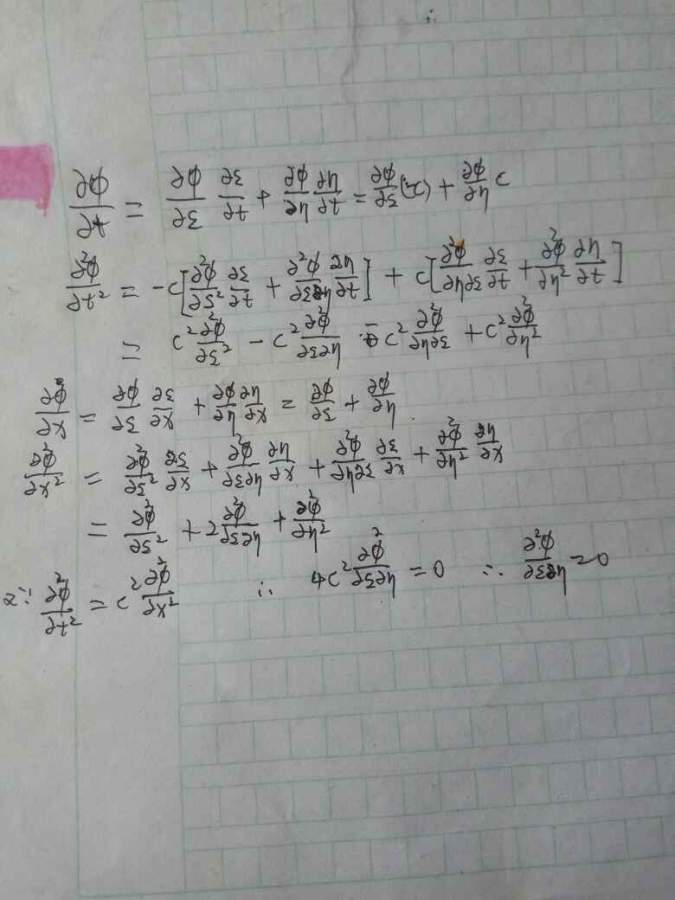 ∂φ/∂t = ∂φ/∂ξ ∂ξ/∂t + ∂φ/∂η ∂η/∂t = ∂φ/∂ξ (-c) + ∂φ/∂η c
∂²φ/∂t² = -c[∂²φ/∂ξ² ∂ξ/∂t + ∂²φ/∂ξ∂η ∂η/∂t] + c[∂²φ/∂η∂ξ ∂ξ/∂t + ∂²φ/∂η² ∂η/∂t]
= c² ∂²φ/∂ξ² - c² ∂²φ/∂ξ∂η - c² ∂²φ/∂η∂ξ + c² ∂²φ/∂η²
∂φ/∂x = ∂φ/∂ξ ∂ξ/∂x + ∂φ/∂η ∂η/∂x = ∂φ/∂ξ + ∂φ/∂η
∂²φ/∂x² = ∂²φ/∂ξ² ∂ξ/∂x + ∂²φ/∂ξ∂η ∂η/∂x + ∂²φ/∂η∂ξ ∂ξ/∂x + ∂²φ/∂η² ∂η/∂x
= ∂²φ/∂ξ² + 2 ∂²φ/∂ξ∂η + ∂²φ/∂η²
又∵ ∂²φ/∂t² = c² ∂²φ/∂x² ∴ 4c² ∂²φ/∂ξ∂η = 0 ∴ ∂²φ/∂ξ∂η = 0